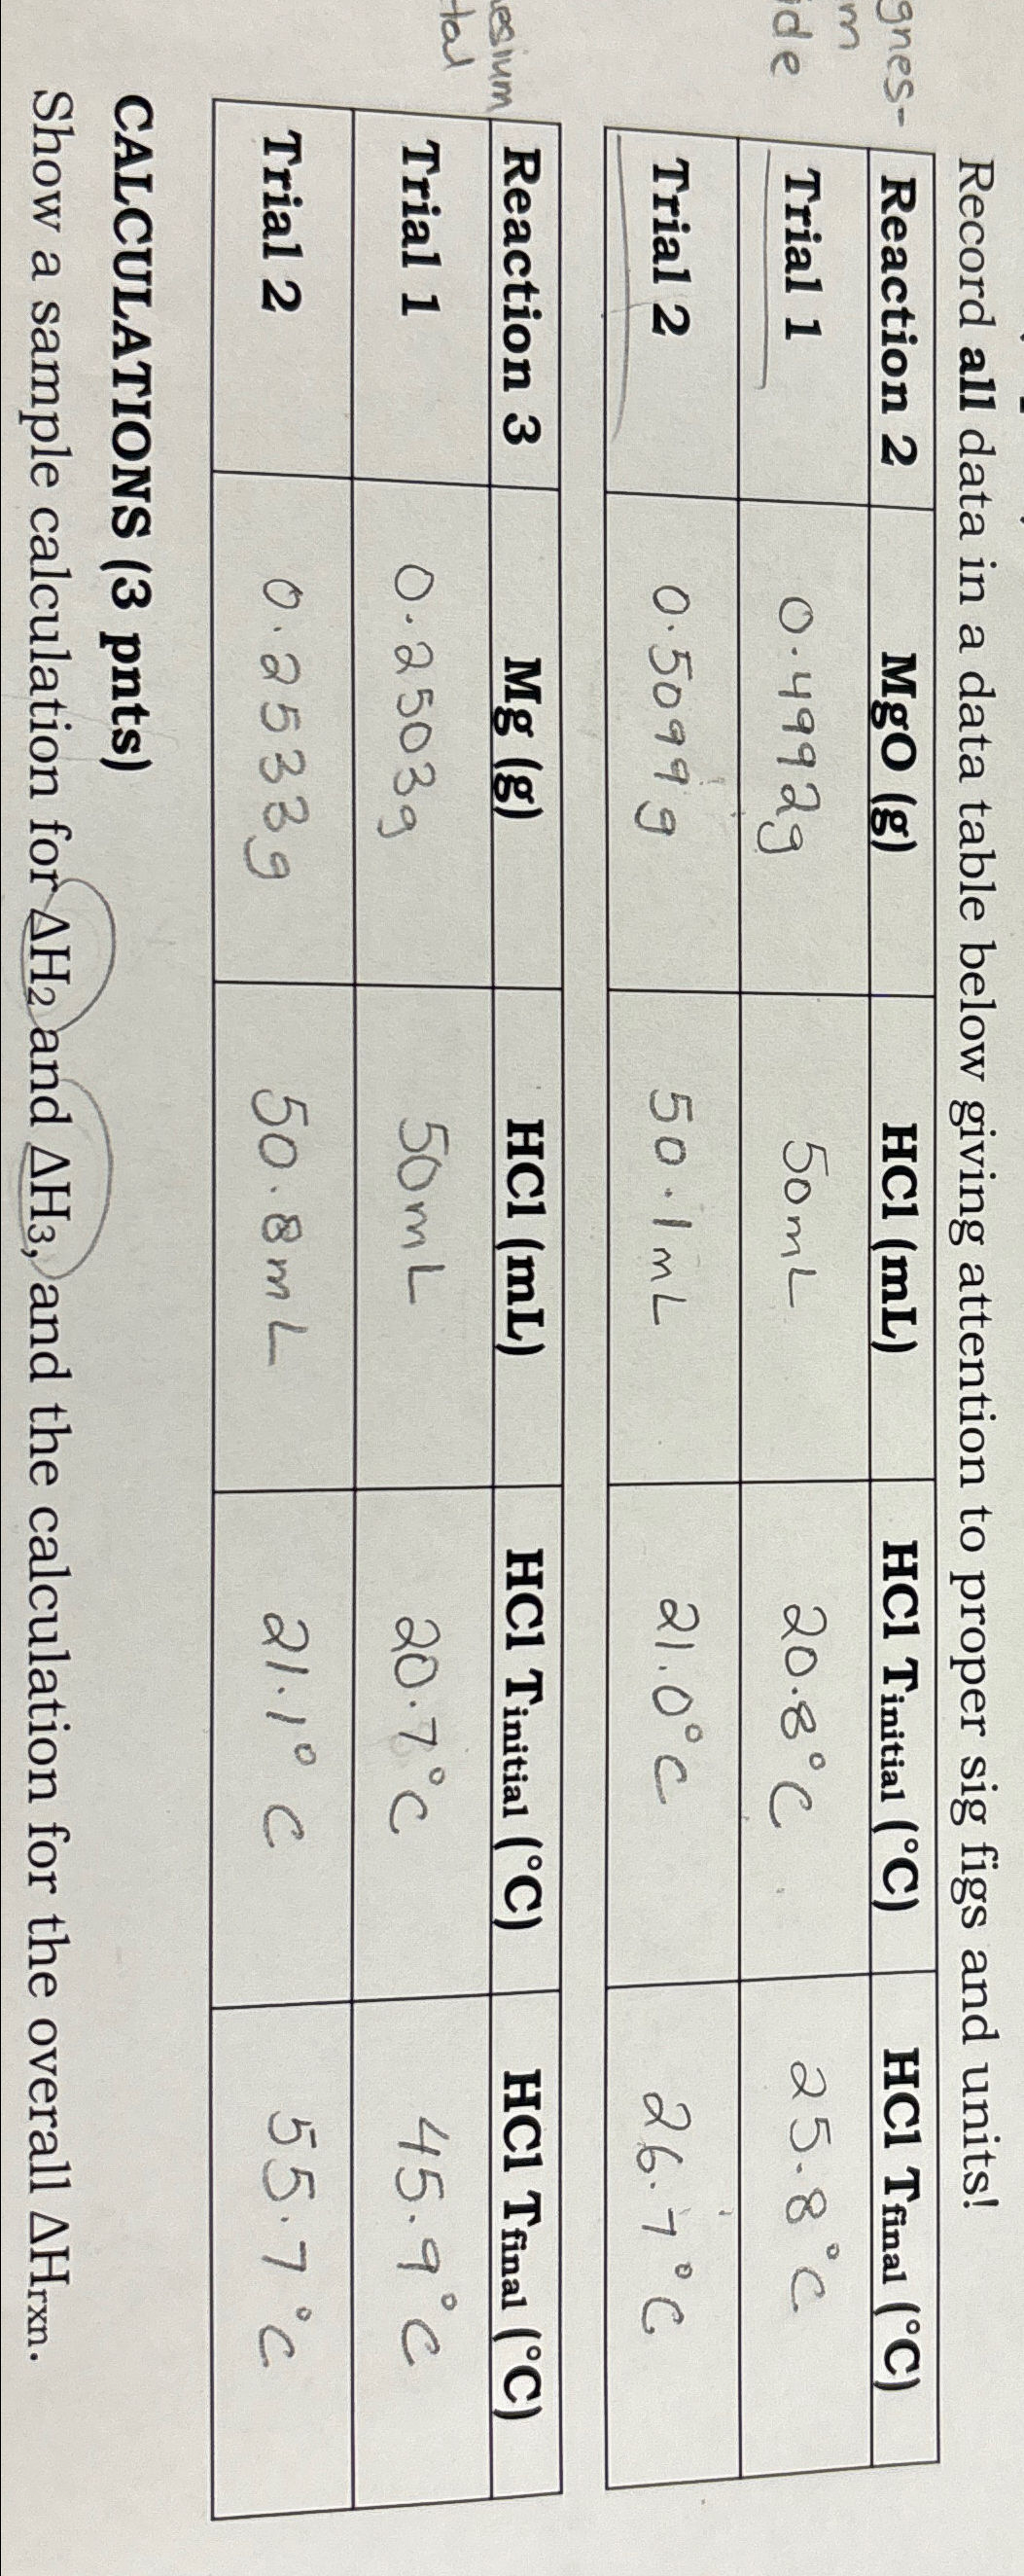 Record all data in a data table below giving attention to proper sig figs and units!
gnes-
m
ide
Reaction 2 MgO (g) HCl (mL) HCl Tinitial (°C) HCl Tfinal (°C)
Trial 1 0.4992g 50mL 20.8°C 25.8°C
Trial 2 0.5099g 50.1mL 21.0°C 26.7°C
esium
tal
Reaction 3 Mg (g) HCl (mL) HCl Tinitial (°C) HCl Tfinal (°C)
Trial 1 0.2503g 50mL 20.7°C 45.9°C
Trial 2 0.2533g 50.8mL 21.1°C 55.7°C
CALCULATIONS (3 pnts)
Show a sample calculation for ΔH2 and ΔH3, and the calculation for the overall ΔHrxn.